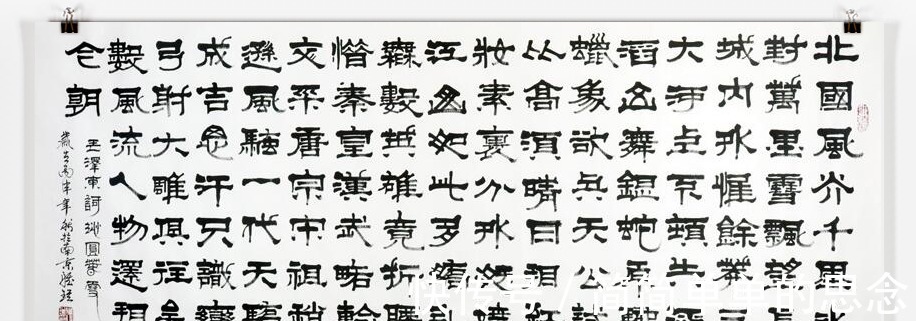 北國風光千里冰
封萬里雪飄望長
城内外惟餘莽莽
大河上下頓失滔
滔山舞銀蛇原馳
蠟象欲與天公試
比高須晴日看紅
妝素裹分外妖嬈
江山如此多嬌引
無數英雄競折腰
惜秦皇漢武略輸
文采唐宗宋祖稍
遜風騷一代天驕
成吉思汗只識彎
弓射大雕俱往矣
數風流人物還看
今朝
毛澤東詞沁園春雪
快传号/简简单单的思念